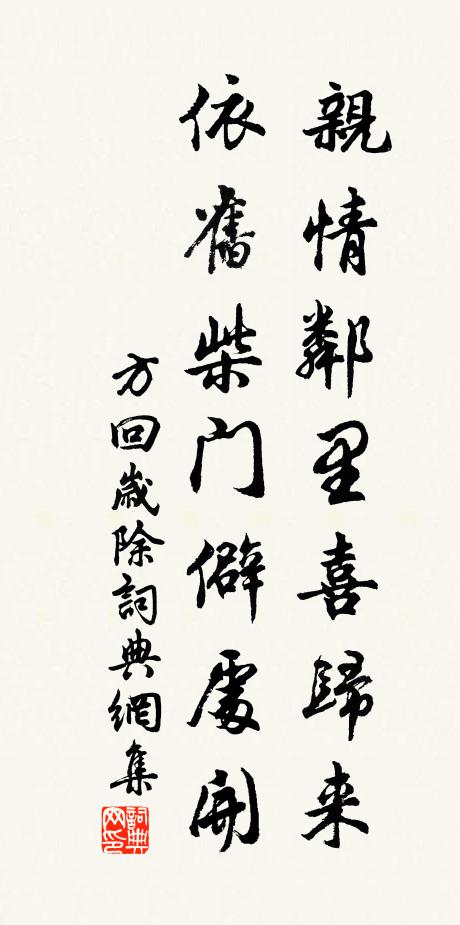 親情鄰里喜歸来
依舊柴門僻處開
方回歲除詞典網集
詞典网印